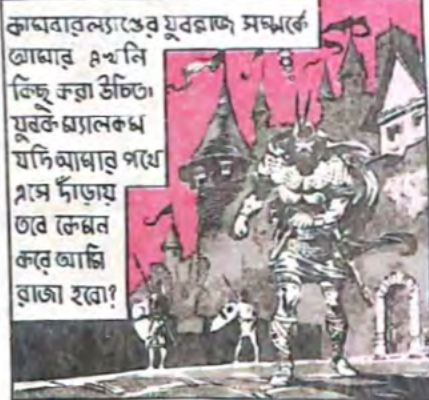 কাম্বারল্যাণ্ডের যুবরাজ সম্পর্কে
আমার এখনি
কিছু করা উচিত।
যুবক ম্যালকম
যদি আমার পথে
এসে দাঁড়ায়
তবে কেমন
করে আমি
রাজা হবো?